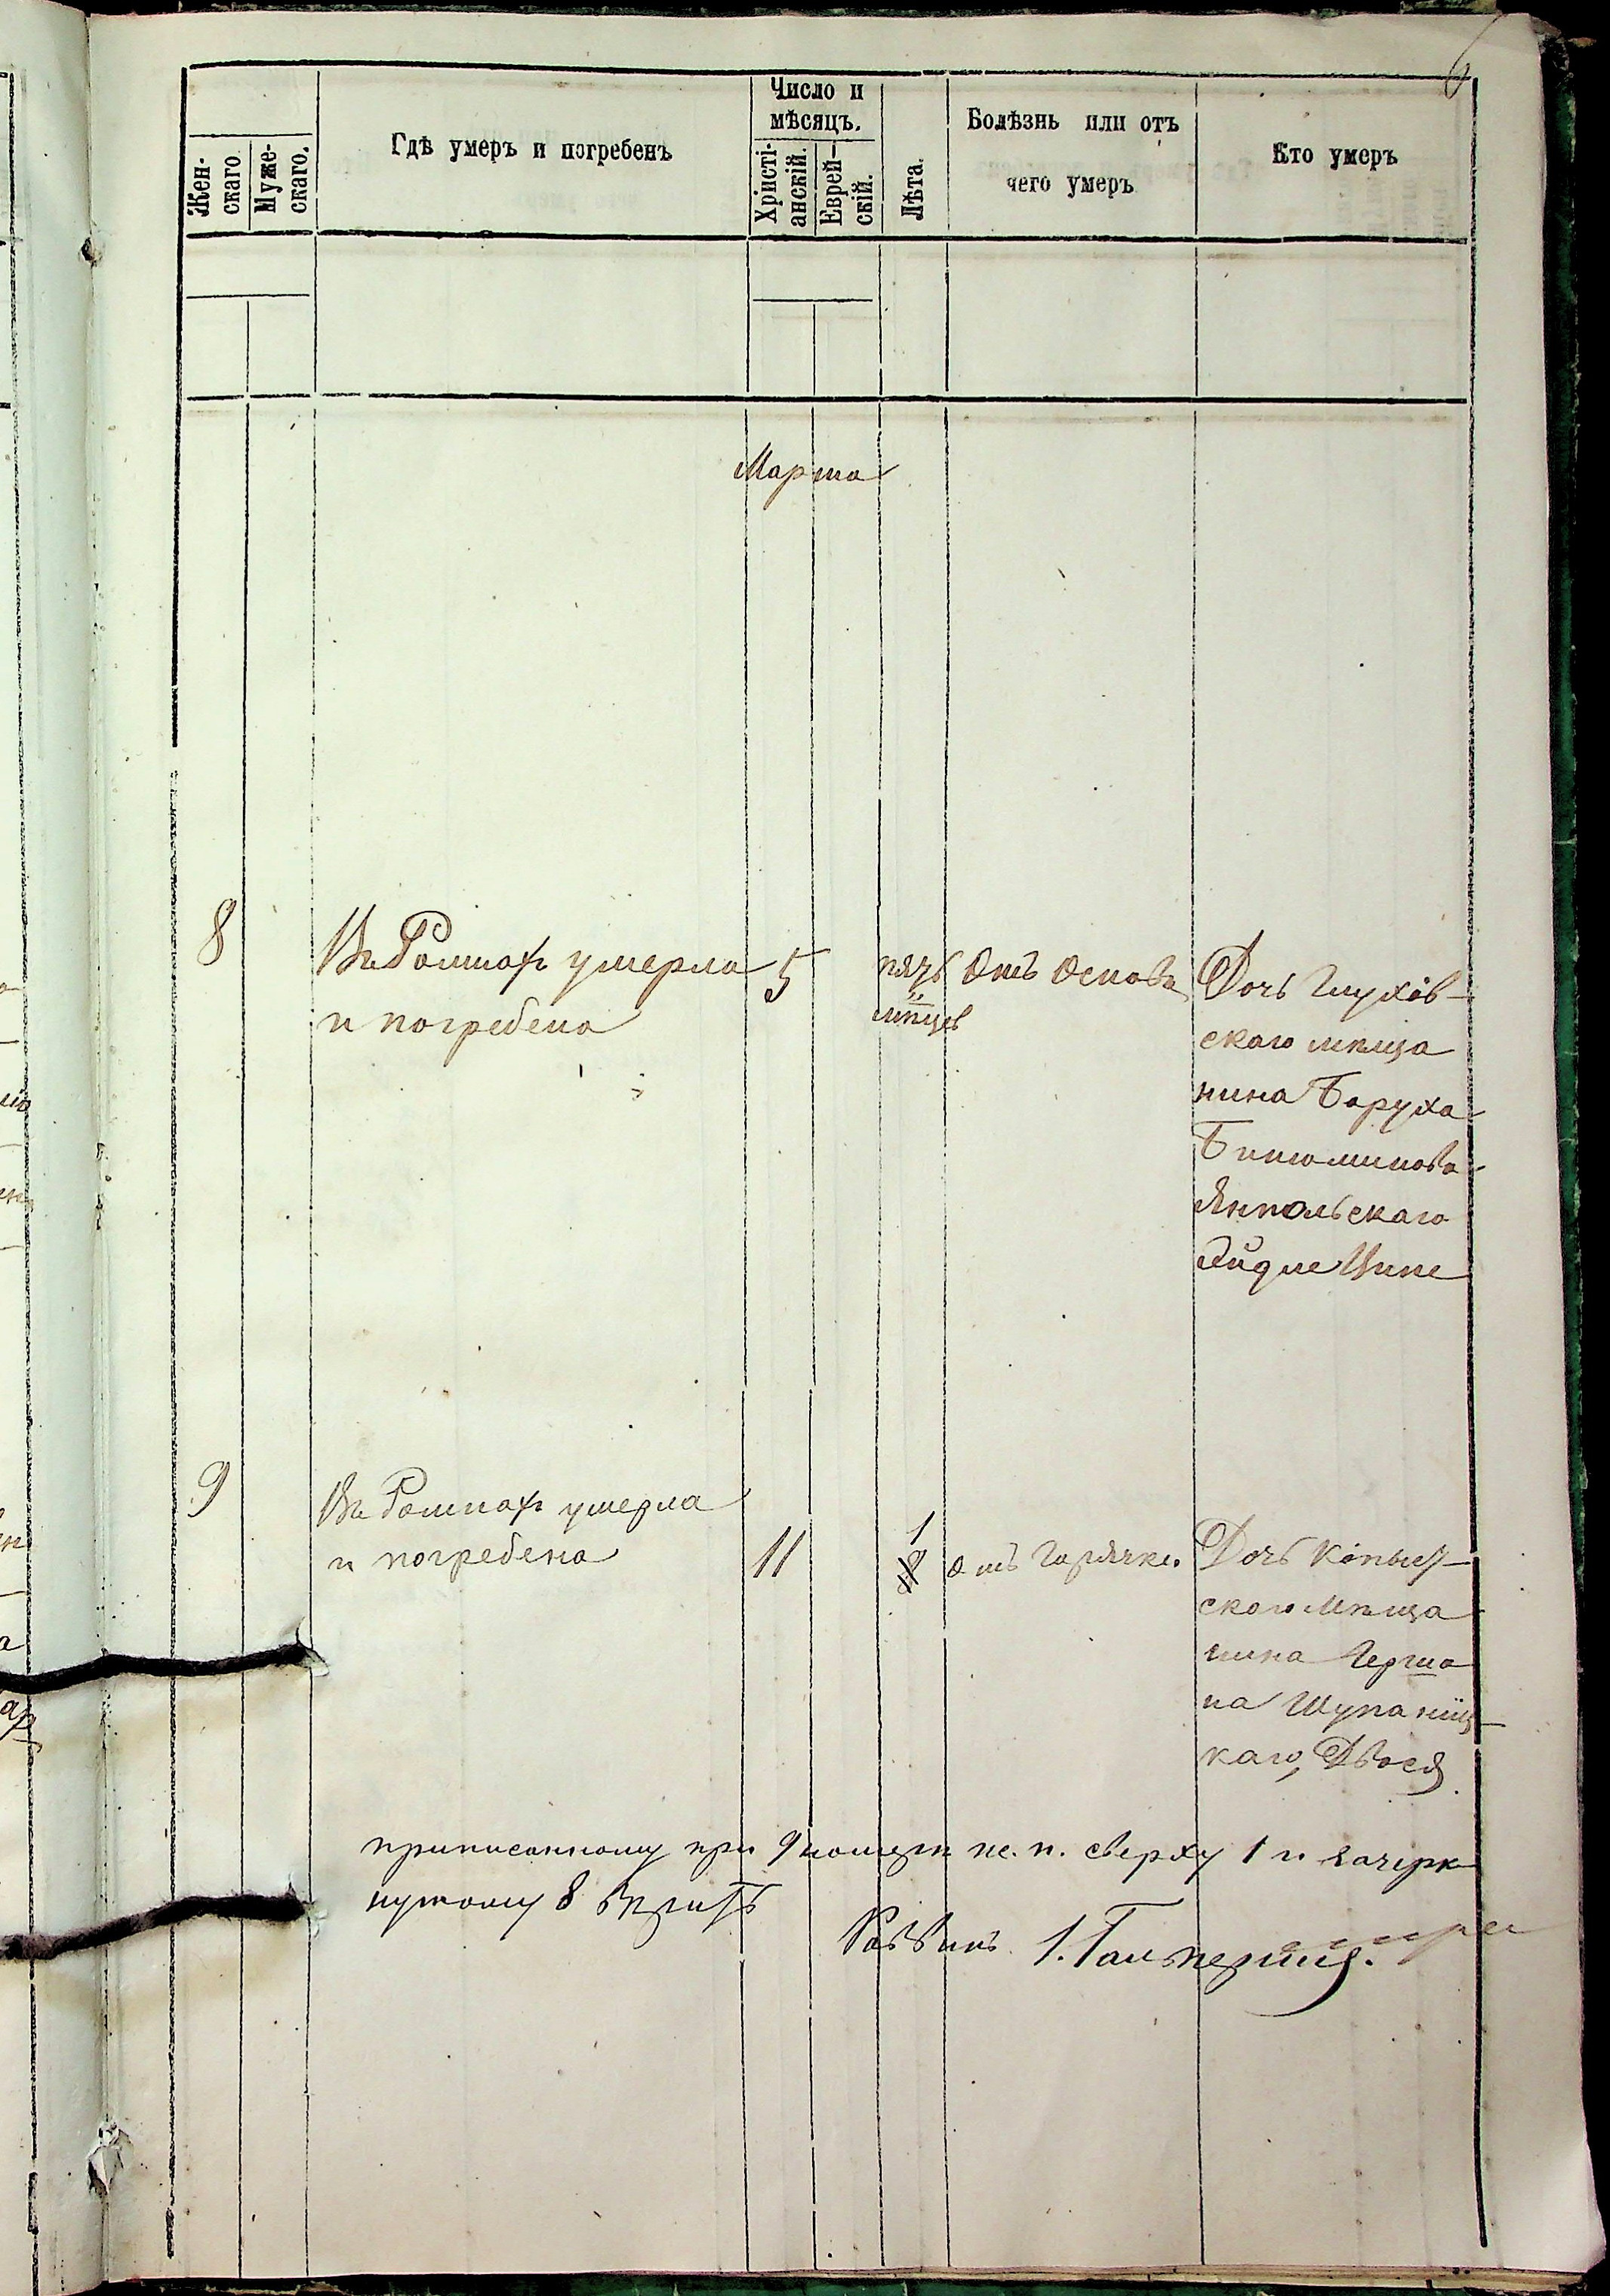 6
Жен-
скаго.
Муже-
скаго.
Гдѣ умеръ и погребенъ
Число и
мѣсяцъ.
Христі-
анскій.
Еврей-
скій.
Лѣта.
Болѣзнь или отъ
чего умеръ
Кто умеръ
Марта
8
Въ Ромнахъ умерла
и погребена
5
пять
мѣсяцев
Отъ
Дочь Глухов-
скаго мѣща
нина Баруха
Биньоминова
Янпольскаго
9
Въ Ромнахъ умерла
и погребена
11
1
8
отъ Горячки
Дочь Копыс-
скаго Мѣща
нина Герша
на
каго, Двося
приписанному при 9 номерѣ ж. п. сверху 1 и зачерк
нутому 8 вѣрить
Раввинъ І. Гальперинъ.